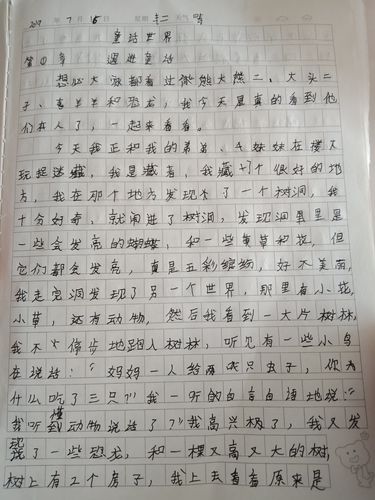 2019年 7月 15日 星期二 天气 晴
童话世界
第①章 遇进童话
想必大家都看过熊熊大然二、大头二
子、喜羊羊和恐龙，我今天是真的看到他
们本人了，一起来看看。
今天我正和我的弟弟、妹妹在楼下
玩捉迷藏，我是藏者，我藏了个很好的地
方，我在那个地方发现了一个树洞，我
十分好奇，就闯进了树洞，发现洞里是
一些会发亮的蝴蝶，和一些草草和花，但
它们都会发亮，真是五彩缤纷，好不美丽，
我走完洞发现了另一个世界，那里有小花，
小草，还有动物，然后我看到一大片树林，
我不停步地跑入树林，听见有一些小鸟
在说话：“妈妈一人给两只虫子，你为
什么吃了三只？”我一听的自言自语地说：“
我听懂动物说话了？”我高兴极了，我又发
现了一些恐龙，和一棵又高又大的树，
树上有2个房子，我上去看看原来是